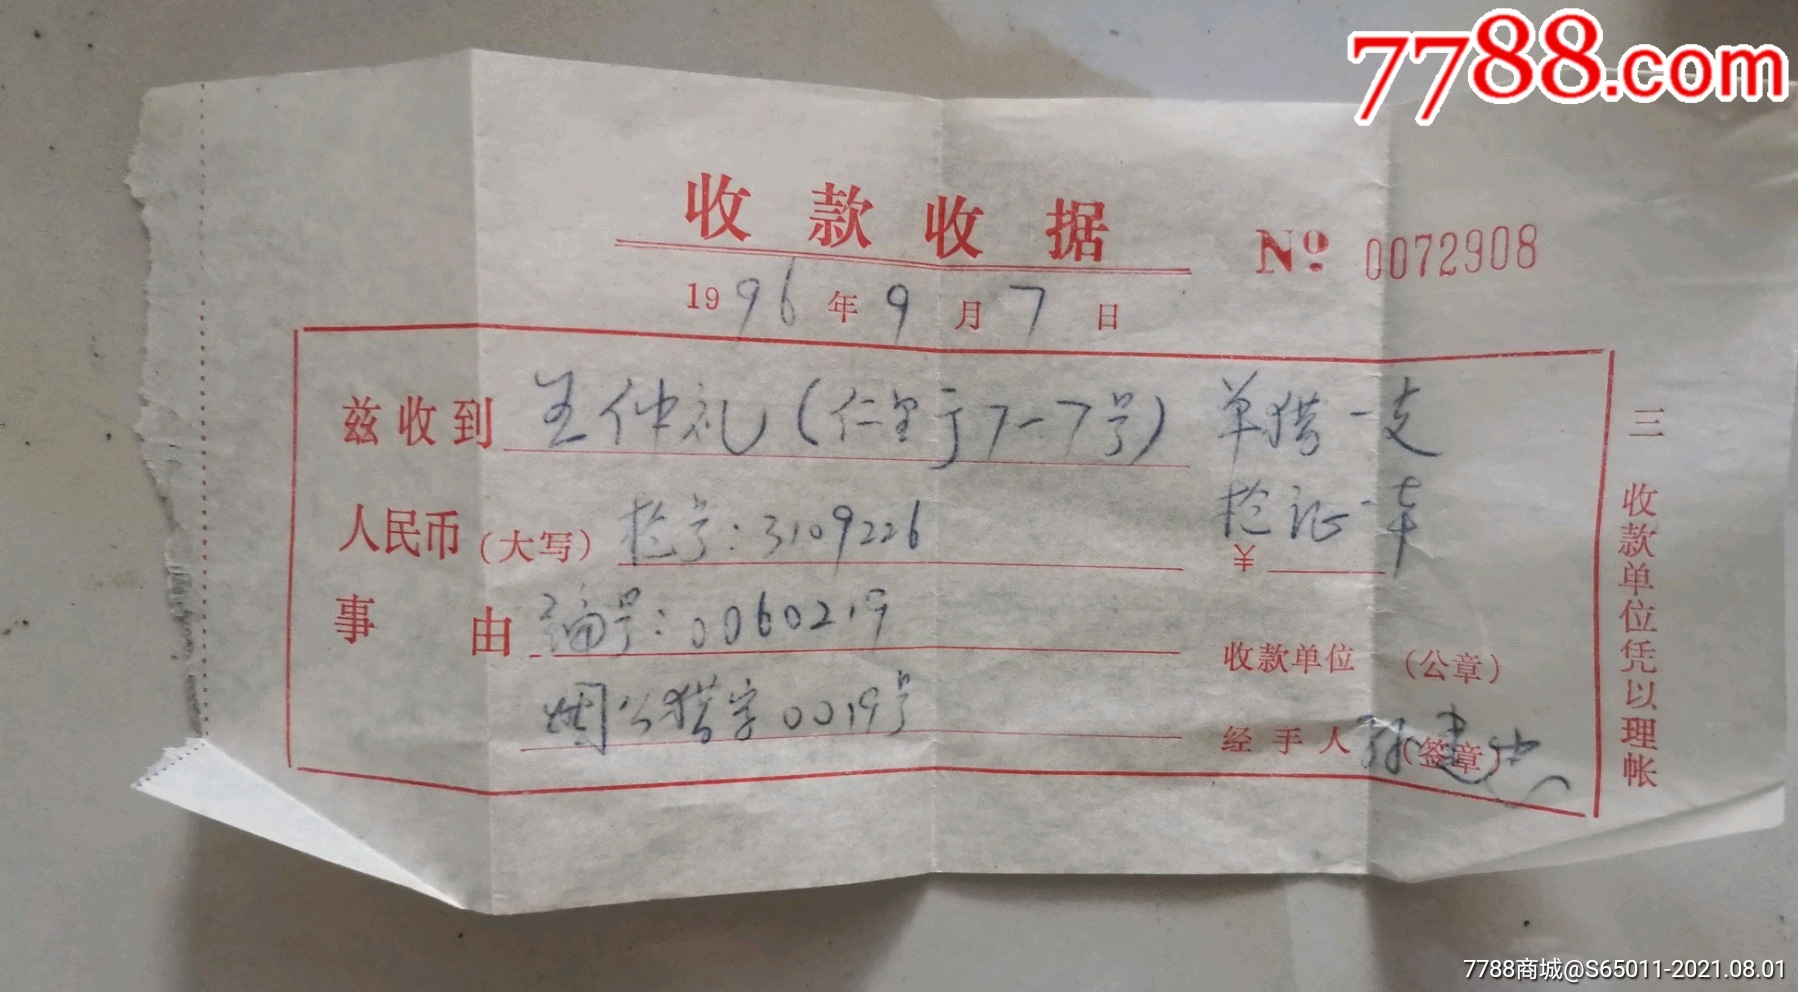 7788.com
收款收据
No 0072908
1996年9月7日
兹收到 王仲礼(仁里于7-7号) 单猎一支
人民币(大写) 枪号:3109226 枪证一本
¥
事由 编号:0060219
烟公猎字0019号
收款单位(公章)
经手人(签章) 建
三 收款单位凭以理帐
7788商城@S65011-2021.08.01